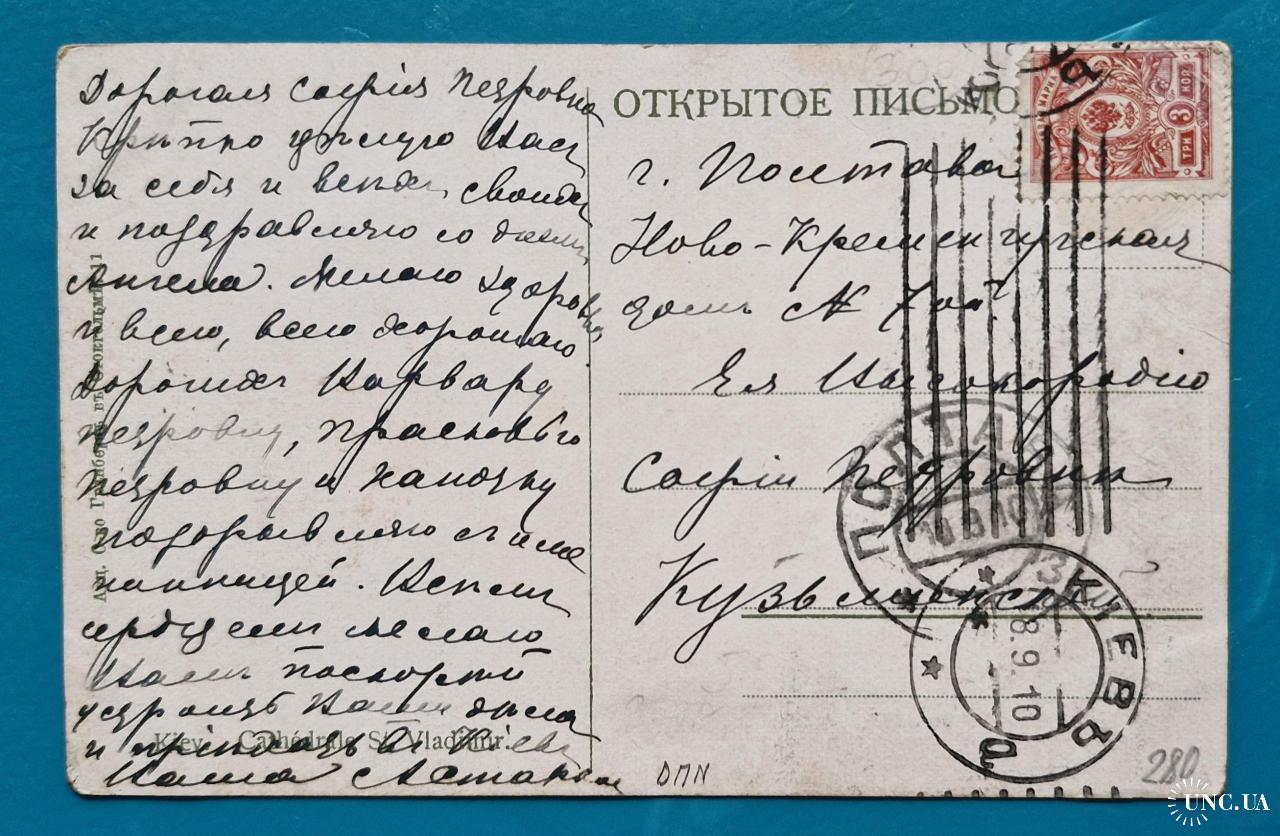 Дорогая Софія Петровна
Крѣпко цѣлую Васъ
за себя и всѣхъ своихъ
и поздравляю со днемъ
Ангела. Желаю здоровья
и всего, всего хорошаго
Дорогихъ Варвару
Петровну, Прасковью
Петровну и
поздравляю съ име
нинницей. Всѣмъ
сердцемъ желаю
Вамъ поскорѣй
устроить Ваши дѣла
и пріѣхать въ Кіевъ
Ваша
Kiev. Cathédrale St. Vladimir.
ОТКРЫТОЕ ПИСЬМО
МАРКА
ТРИ 3 КОП.
г. Полтава
Ново-Кременчугская
домъ №
Ея Высокородію
Софіи Петровнѣ
ПОЛТАВА
КІЕВЪ
8.9.10
а
DMN
280
UNC.UA